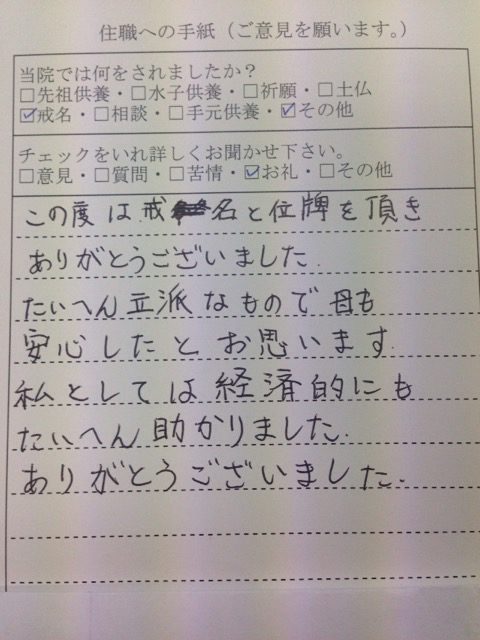 住職への手紙（ご意見を願います。）
当院では何をされましたか？
□先祖供養・□水子供養・□祈願・□土仏
☑戒名・□相談・□手元供養・☑その他
チェックをいれ詳しくお聞かせ下さい。
□意見・□質問・□苦情・☑お礼・□その他
この度は戒名と位牌を頂き
ありがとうございました.
たいへん立派なもので母も
安心したとお思います.
私としては経済的にも
たいへん助かりました.
ありがとうございました.